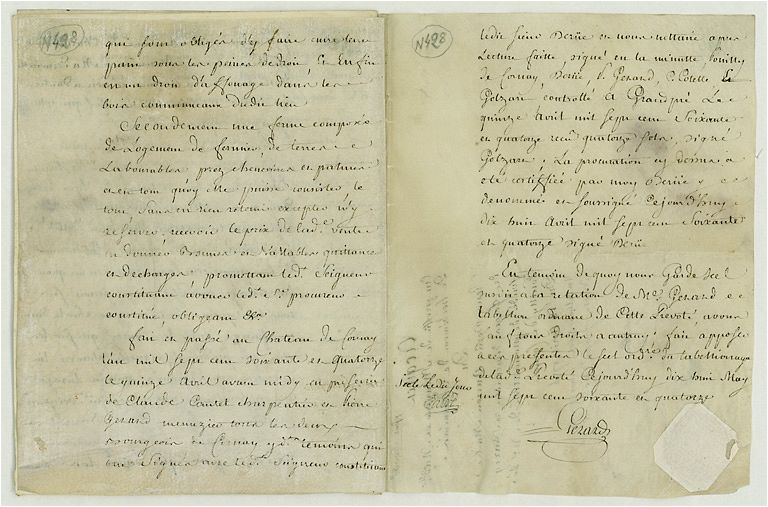 N428
qui sont obligés d'y faire cuire leur
pain sous les peines de droit, Et Enfin
en un droit d'affouage dans les
bois communeaux dudit lieu
Secondement une ferme composée
de Logement de fermier, de terres
Labourables, prez chenevieres et patures
et en tout quoy elle puisse consister le
tout sans en rien retenir excepter n'y
reserver, recevoir le prix de lad. vente
en donner Bonnes et Vallables quittances
et decharges, promettant led. Seigneur
constituant avouer led. Sr. procureur
constitué, obligeant &c
fait et passé au Chateau de Cornay
l'an mil sept cent soixante et quatorze
le quinze avril avant midy en presence
de Claude charpentier et
Gerard menuzier tous les deux
Bourgeois de Cornay y temoins qui
ont signés avec led. Seigneur constituant
N428
ledit sieur Derüe et nous nottaire apres
Lecture faitte, signé en la minutte
de Cornay Derüe, Gerard, P. Et
Golzart, controllé a Grandpré Le
quinze avril mil sept cent Soixante
et quatorze reçu quatorze sols, signé
Golzart, La procuration cy dessus a
eté certiffiée par moy Derüe y
denommé et soussigné Cejourd'huy
dix huit avril mil sept cent Soixante
et quatorze signé Derüe
En temoin de quoy nous Garde scel
sur la relation de Me. Gerard
tabellion ordinaire de Cette Prevoté avons
sauf tous droits a autruy fait apposer
a ces presentes le scel ordre. du tabellionnage
de lad. Prevoté Cejourd'huy dix huit May
mil sept cent soixante et quatorze
Scelé Ledit jour
Gerard